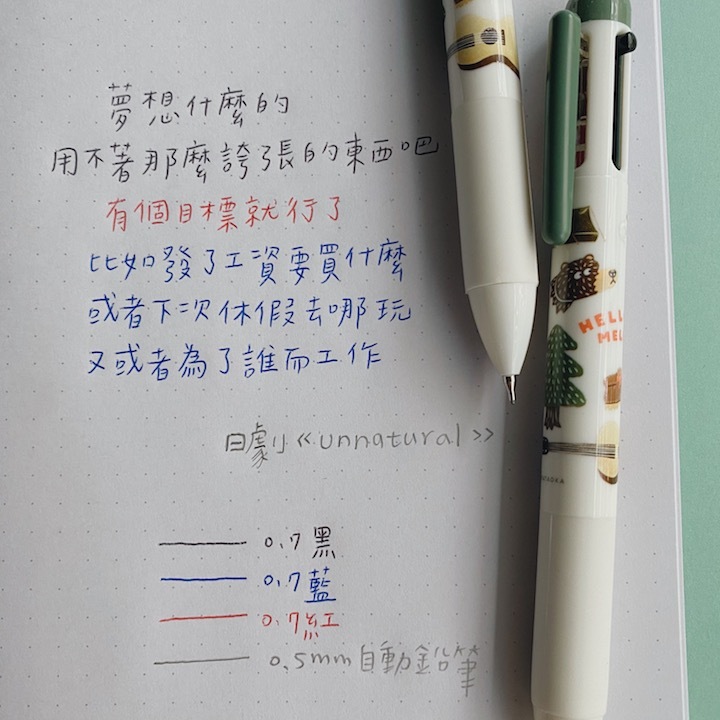 夢想什麼的
用不著那麼誇張的東西吧
有個目標就行了
比如發了工資要買什麼
或者下次休假去哪玩
又或者為了誰而工作
日劇《unnatural》
0.7黑
0.7藍
0.7紅
0.5mm自動鉛筆